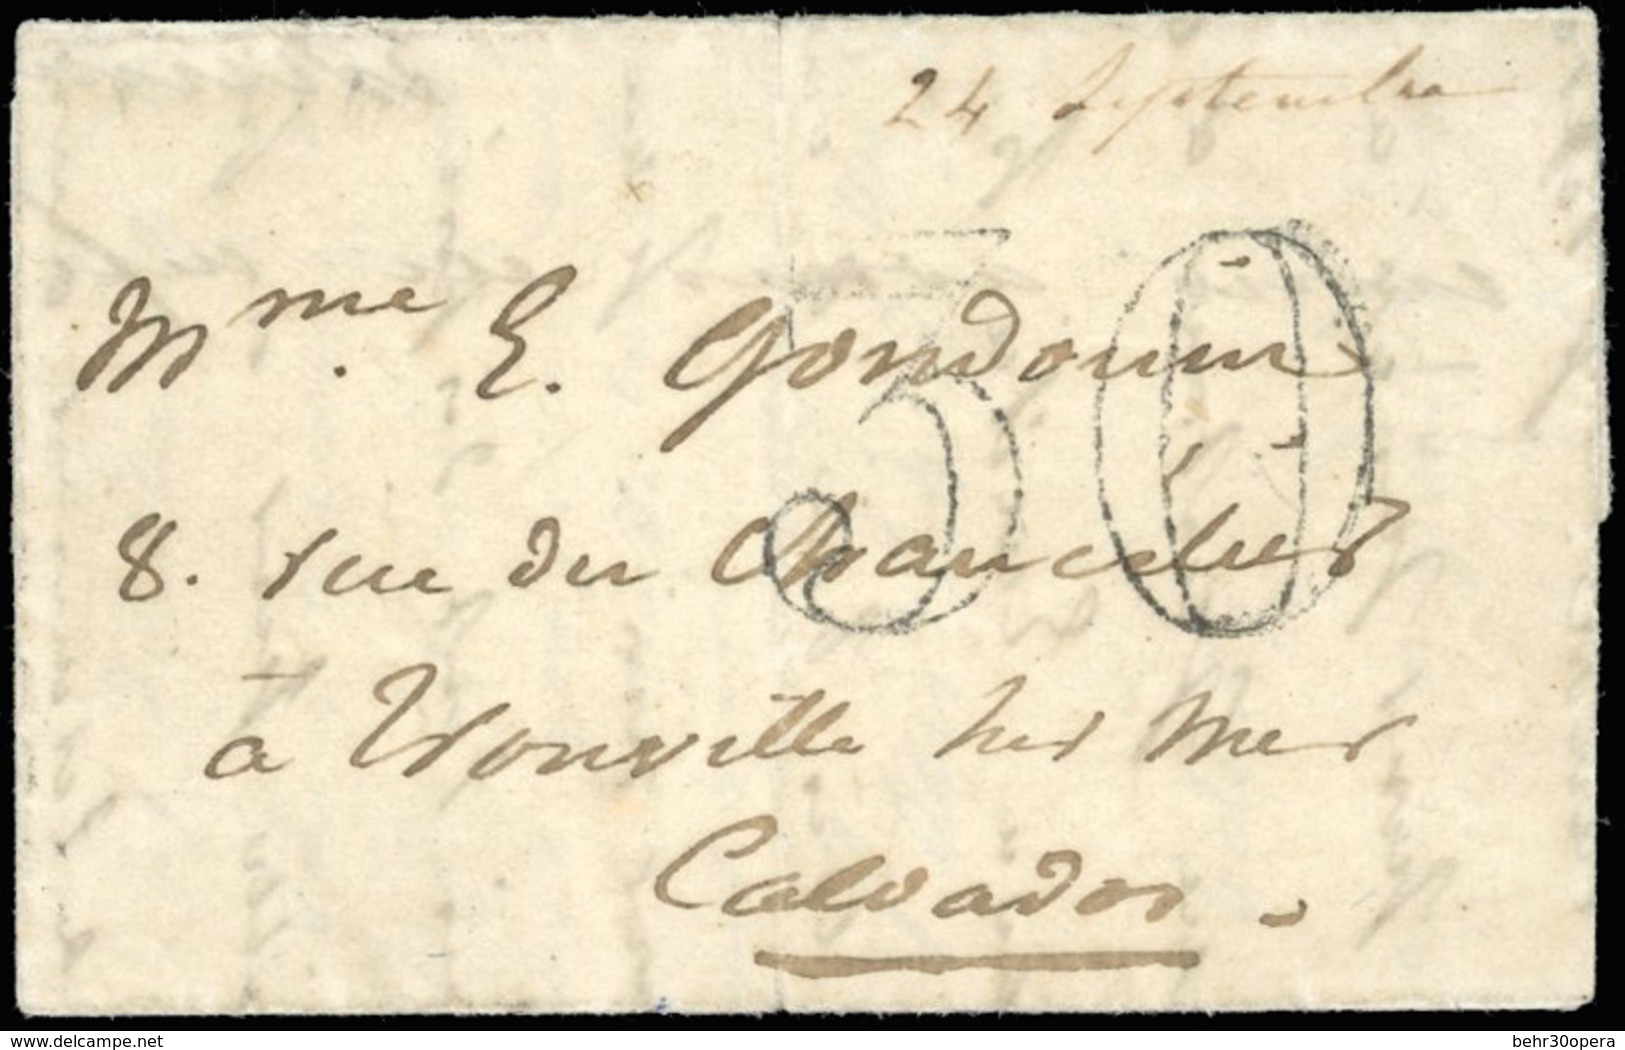 24 Septembre
30
Mme. E. Gondouin
8. rue du Chancelier
à Trouville sur Mer
Calvados.
delcampe.net
behr30opera